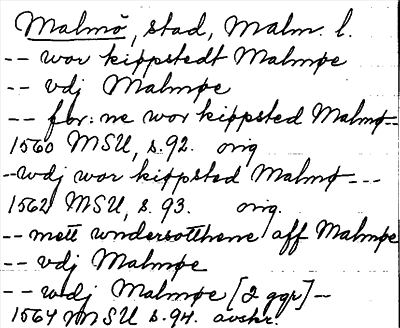 Malmö, stad, Malm. l.
-- wor kippstedt Malmøe
-- vdj Malmøe
-- for:ne wor kippsted Malmø--
1560 MSU, s.92. orig
--wdj wor kippsted Malmø---
1562 MSU, s.93. orig.
--mett wndersotthene aff Malmøe
-- vdj Malmøe
-- wdj Malmøe [2 ggr]--
1564 MSU s.94. avskr.